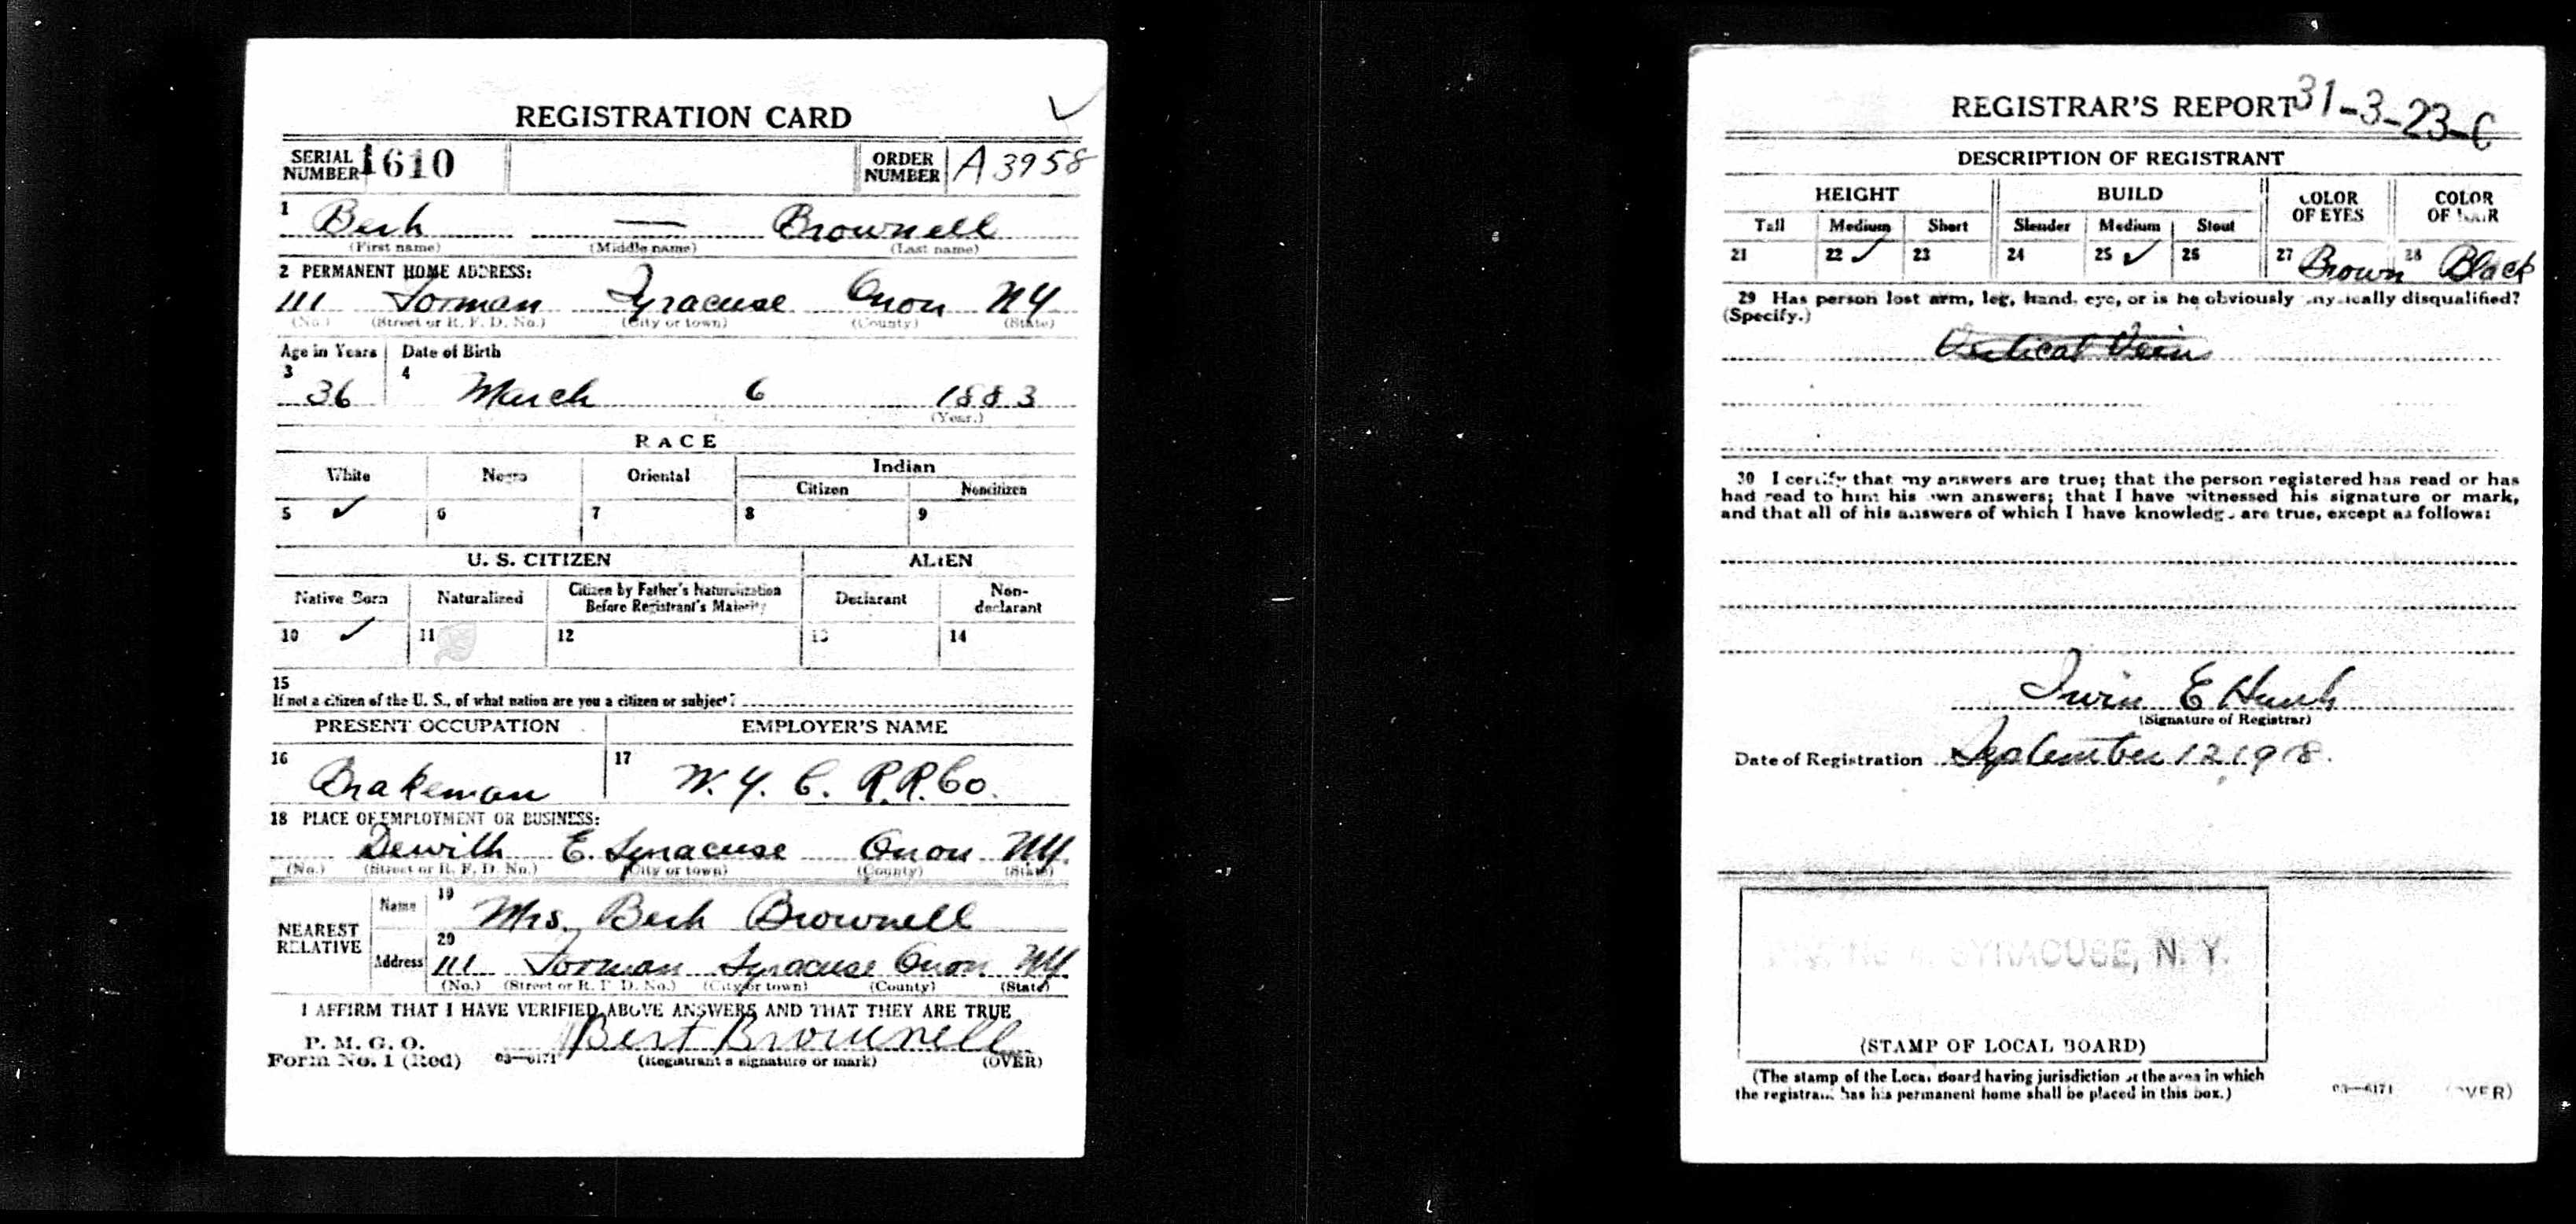 REGISTRATION CARD
SERIAL NUMBER 1610 ORDER NUMBER A3958
1 Bert — Brownell
(First name) (Middle name) (Last name)
2 PERMANENT HOME ADDRESS:
111 Forman Syracuse Onon NY
(No.) (Street or R. F. D. No.) (City or town) (County) (State)
Age in Years Date of Birth
3 36 4 March 6 1883
(Year.)
RACE
White Negro Oriental Indian
Citizen Noncitizen
5 ✓ 6 7 8 9
U. S. CITIZEN ALIEN
Native Born Naturalized Citizen by Father's Naturalization Before Registrant's Majority Declarant Non-declarant
10 ✓ 11 12 13 14
15
If not a citizen of the U. S., of what nation are you a citizen or subject?
PRESENT OCCUPATION EMPLOYER'S NAME
16 Brakeman 17 N. Y. C. R.R. Co.
18 PLACE OF EMPLOYMENT OR BUSINESS:
Dewitt E. Syracuse Onon NY
(No.) (Street or R. F. D. No.) (City or town) (County) (State)
NEAREST RELATIVE
Name 19 Mrs. Bert Brownell
Address 20 111 Forman Syracuse Onon NY
(No.) (Street or R. F. D. No.) (City or town) (County) (State)
I AFFIRM THAT I HAVE VERIFIED ABOVE ANSWERS AND THAT THEY ARE TRUE
P. M. G. O.
Form No. 1 (Red) 03—6171 Bert Brownell
(Registrant's signature or mark) (OVER)
REGISTRAR'S REPORT 31-3-23-C
DESCRIPTION OF REGISTRANT
HEIGHT BUILD COLOR OF EYES COLOR OF HAIR
Tall Medium Short Slender Medium Stout
21 22 ✓ 23 24 25 ✓ 26 27 Brown 28 Black
29 Has person lost arm, leg, hand, eye, or is he obviously physically disqualified?
(Specify.)
30 I certify that my answers are true; that the person registered has read or has
had read to him his own answers; that I have witnessed his signature or mark,
and that all of his answers of which I have knowledge are true, except as follows:
Irwin E
(Signature of Registrar)
Date of Registration September 12 1918.
SYRACUSE, N. Y.
(STAMP OF LOCAL BOARD)
(The stamp of the Local Board having jurisdiction of the area in which
the registrant has his permanent home shall be placed in this box.)
03—6171 (OVER)